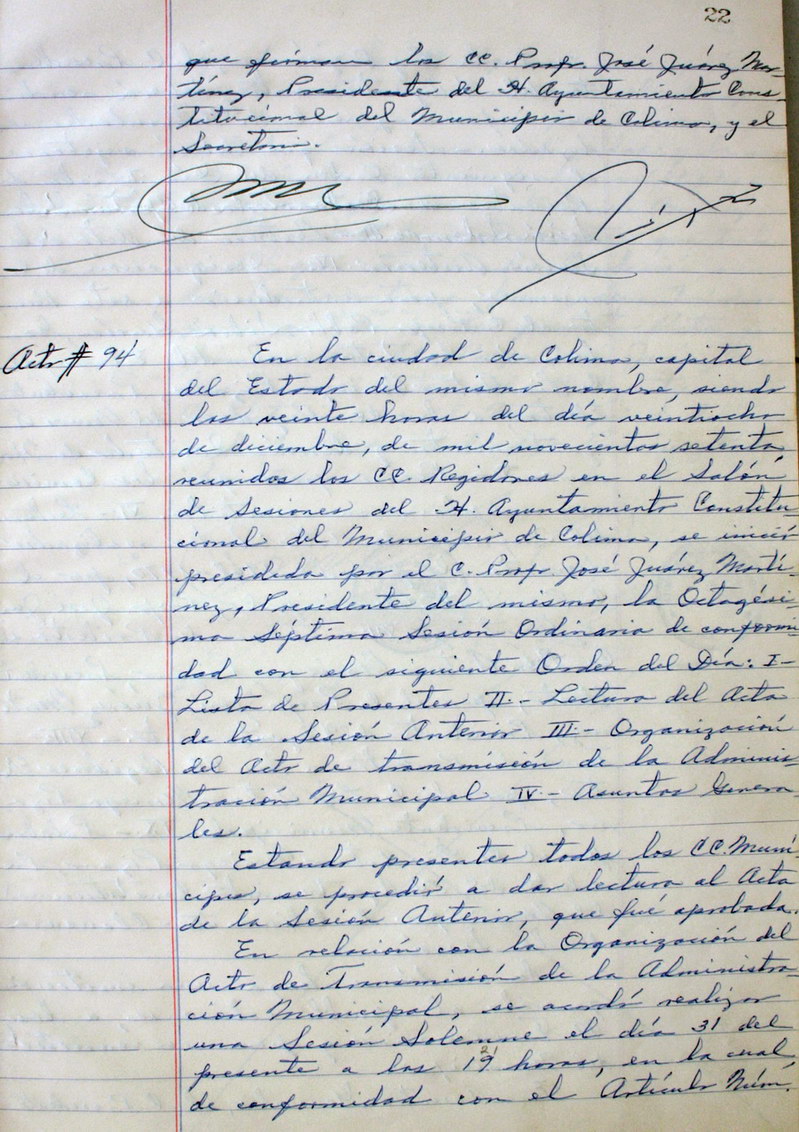 22
que firman los CC. Profr. José Juárez Mar-
tínez, Presidente del H. Ayuntamiento Cons-
titucional del Municipio de Colima, y el
Secretario.
Acta # 94
En la ciudad de Colima, capital
del Estado del mismo nombre, siendo
las veinte horas del día veintiocho
de diciembre, de mil novecientos setenta,
reunidos los CC. Regidores en el Salón
de Sesiones del H. Ayuntamiento Constitu-
cional del Municipio de Colima, se inició
presidida por el C. Profr. José Juárez Martí-
nez, Presidente del mismo, la Octagési-
ma Séptima Sesión Ordinaria de conformi-
dad con el siguiente Orden del Día: I-
Lista de Presentes II.- Lectura del Acta
de la Sesión Anterior III- Organización
del Acto de transmisión de la Adminis-
tración Municipal IV- Asuntos Genera-
les.
Estando presentes todos los CC. Muní-
cipes, se procedió a dar lectura al Acta
de la Sesión Anterior, que fué aprobada.
En relación con la Organización del
Acto de Transmisión de la Administra-
ción Municipal, se acordó realizar
una Sesión Solemne el día 31 del
presente a las horas, en la cual
de conformidad con el Artículo Núm.